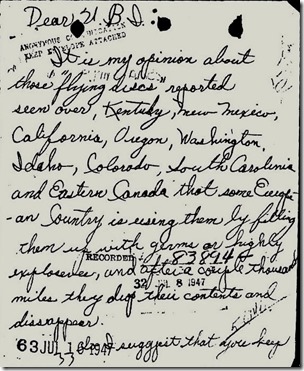 Dear F.B.I.:
ANONYMOUS COMMUNICATION
KEEP ENVELOPE ATTACHED
It is my opinion about
those "flying discs" reported
seen over, Kentucky, new mexico,
California, Oregon, Washington,
Idaho, Colorado, South Carolinia
and Eastern Canada that some Europe-
-an Country is using them by filling
them up with germs or highly
RECORDED 83894
explosives, and after a couple thousand
32 JUL 8 1947
miles they drop their contents and
dissappear.
63 JUL 16 1947 suggest that you keep